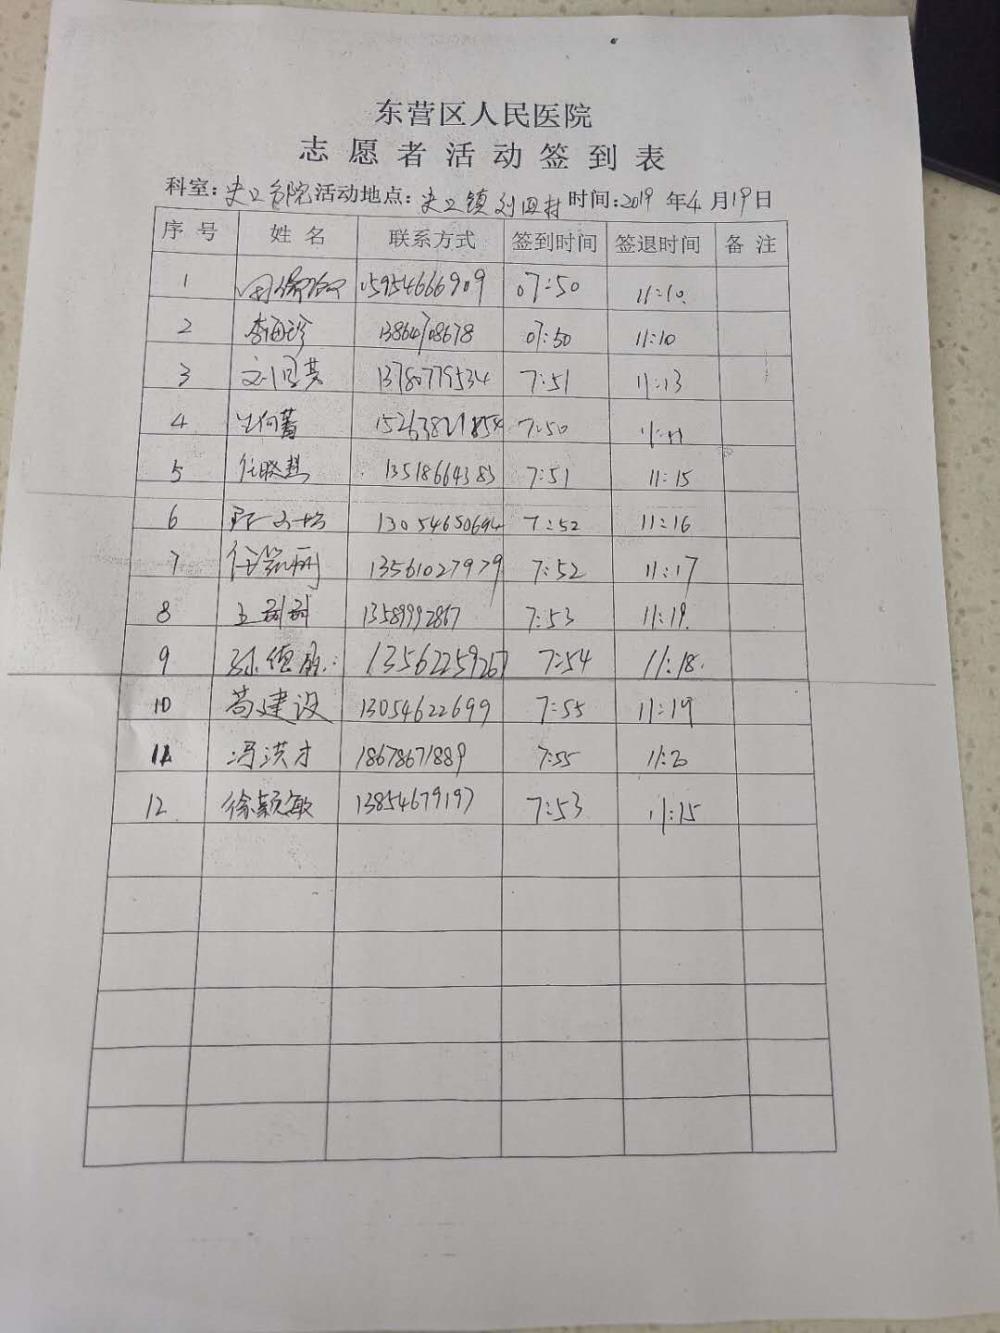 东营区人民医院
志愿者活动签到表
科室:史口分院活动地点:史口镇刘四村时间:2019年4月19日
序号 姓名 联系方式 签到时间 签退时间 备注
1 15954666909 07:50 11:10
2 李海珍 13864708678 07:50 11:10
3 13780779534 7:51 11:13
4 15263821854 7:50
5 任晓燕 13518664383 7:51 11:15
6 13054650694 7:52 11:16
7 13561027979 7:52 11:17
8 13589992867 7:53 11:19
9 13562259267 7:54 11:18
10 苟建设 13054622699 7:55 11:19
11 冯洪才 18678671889 7:55 11:20
12 徐颖敏 13854679197 7:53 11:15